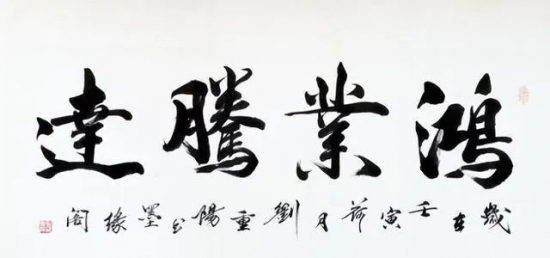 鴻業騰達
歲在壬寅荷月劉重陽書墨緣閣